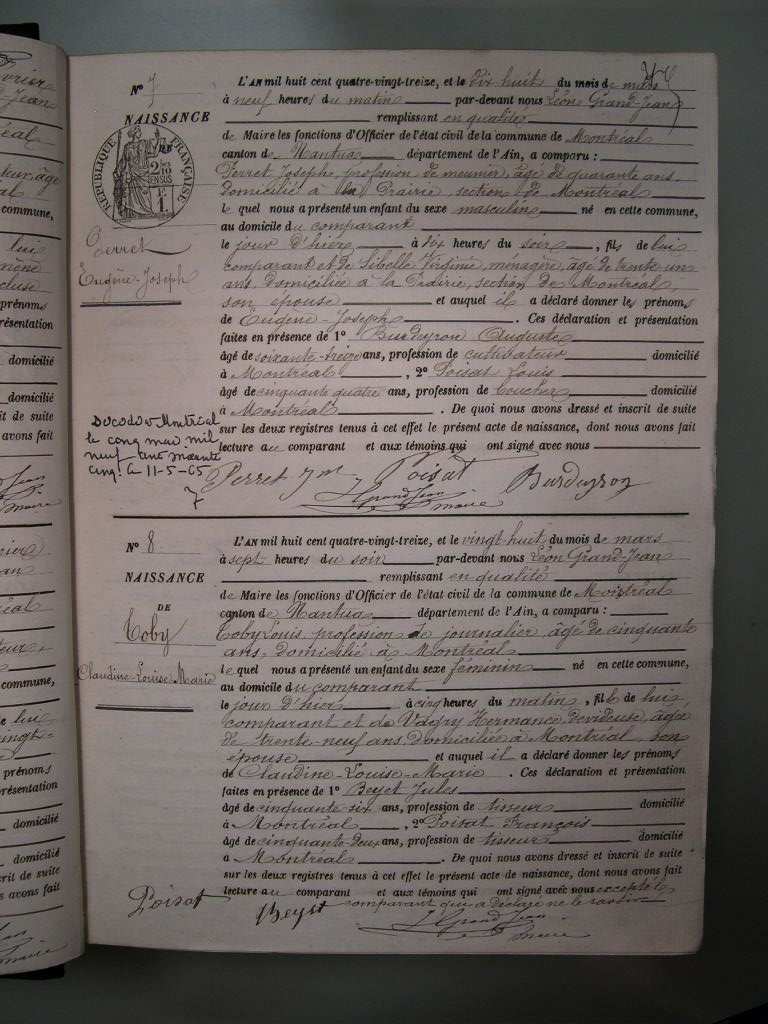 N° 7
NAISSANCE
RÉPUBLIQUE FRANÇAISE
Perret
Eugène-Joseph
L'AN mil huit cent quatre-vingt-treize, et le dix huit du mois de mars
à neuf heures du matin par-devant nous Léon Grand-Jean
remplissant en qualité
de Maire les fonctions d'Officier de l'état civil de la commune de Montréal
canton de Nantua département de l'Ain, a comparu :
Perret Joseph, profession de meunier, âgé de quarante ans
domicilié à la Prairie, section de Montréal
le quel nous a présenté un enfant du sexe masculin né en cette commune,
au domicile du comparant
le jour d'hier, à dix heures du soir, fils de lui
comparant et de Sibelle Virginie, ménagère, âgé de trente un
ans domiciliée à la Prairie, section de Montréal,
son épouse et auquel il a déclaré donner les prénoms
de Eugène-Joseph. Ces déclaration et présentation
faites en présence de 1° Burdeyron Auguste
âgé de soixante-treize ans, profession de cultivateur domicilié
à Montréal, 2° Poisat Louis
âgé de cinquante quatre ans, profession de boucher domicilié
à Montréal. De quoi nous avons dressé et inscrit de suite
sur les deux registres tenus à cet effet le présent acte de naissance, dont nous avons fait
lecture au comparant et aux témoins qui ont signé avec nous
Montréal
le cinq mai mil
neuf cent
cinq. le 11-5-65
Perret Poisat Burdeyron
L Grand Jean
maire
N° 8
NAISSANCE
DE
Toby
Claudine-Louise-Marie
L'AN mil huit cent quatre-vingt-treize, et le vingt-huit du mois de mars
à sept heures du soir par-devant nous Léon Grand-Jean
remplissant en qualité
de Maire les fonctions d'Officier de l'état civil de la commune de Montréal
canton de Nantua département de l'Ain, a comparu :
Toby Louis, profession de journalier, âgé de cinquante
ans, domicilié à Montréal
le quel nous a présenté un enfant du sexe féminin né en cette commune,
au domicile du comparant
le jour d'hier à cinq heures du matin, fille de lui,
comparant et de Vagry Hermance, dévideuse, âgée
de trente-neuf ans, domiciliée à Montréal son
épouse et auquel il a déclaré donner les prénoms
de Claudine-Louise-Marie. Ces déclaration et présentation
faites en présence de 1° Beyet Jules
âgé de cinquante six ans, profession de tisseur domicilié
à Montréal, 2° Poisat François
âgé de cinquante-deux ans, profession de tisseur domicilié
à Montréal. De quoi nous avons dressé et inscrit de suite
sur les deux registres tenus à cet effet le présent acte de naissance, dont nous avons fait
lecture au comparant et aux témoins qui ont signé avec nous excepté le
comparant qui a déclaré ne le savoir
Poisat Beyet L Grand Jean
maire